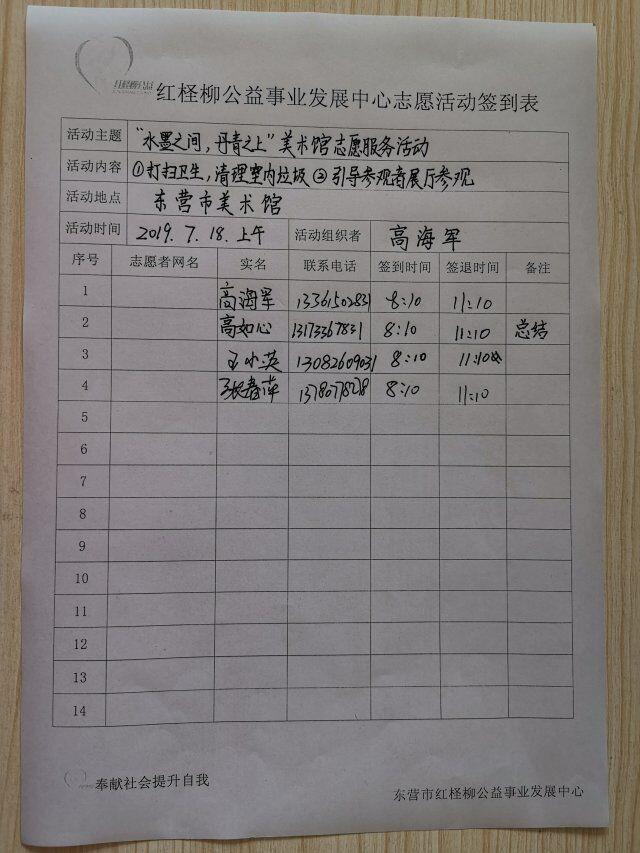 红柽柳公益
红柽柳公益事业发展中心志愿活动签到表
活动主题 “水墨之间，丹青之上”美术馆志愿服务活动
活动内容 ①打扫卫生，清理室内垃圾 ②引导参观者展厅参观
活动地点 东营市美术馆
活动时间 2019.7.18.上午 活动组织者 高海军
序号 志愿者网名 实名 联系电话 签到时间 签退时间 备注
1 高海军 13361502831 8:10 11:10
2 高如心 13173367831 8:10 11:10 总结
3 王小英 13082609031 8:10 11:10
4 张春萍 8:10 11:10
5
6
7
8
9
10
11
12
13
14
奉献社会提升自我
东营市红柽柳公益事业发展中心